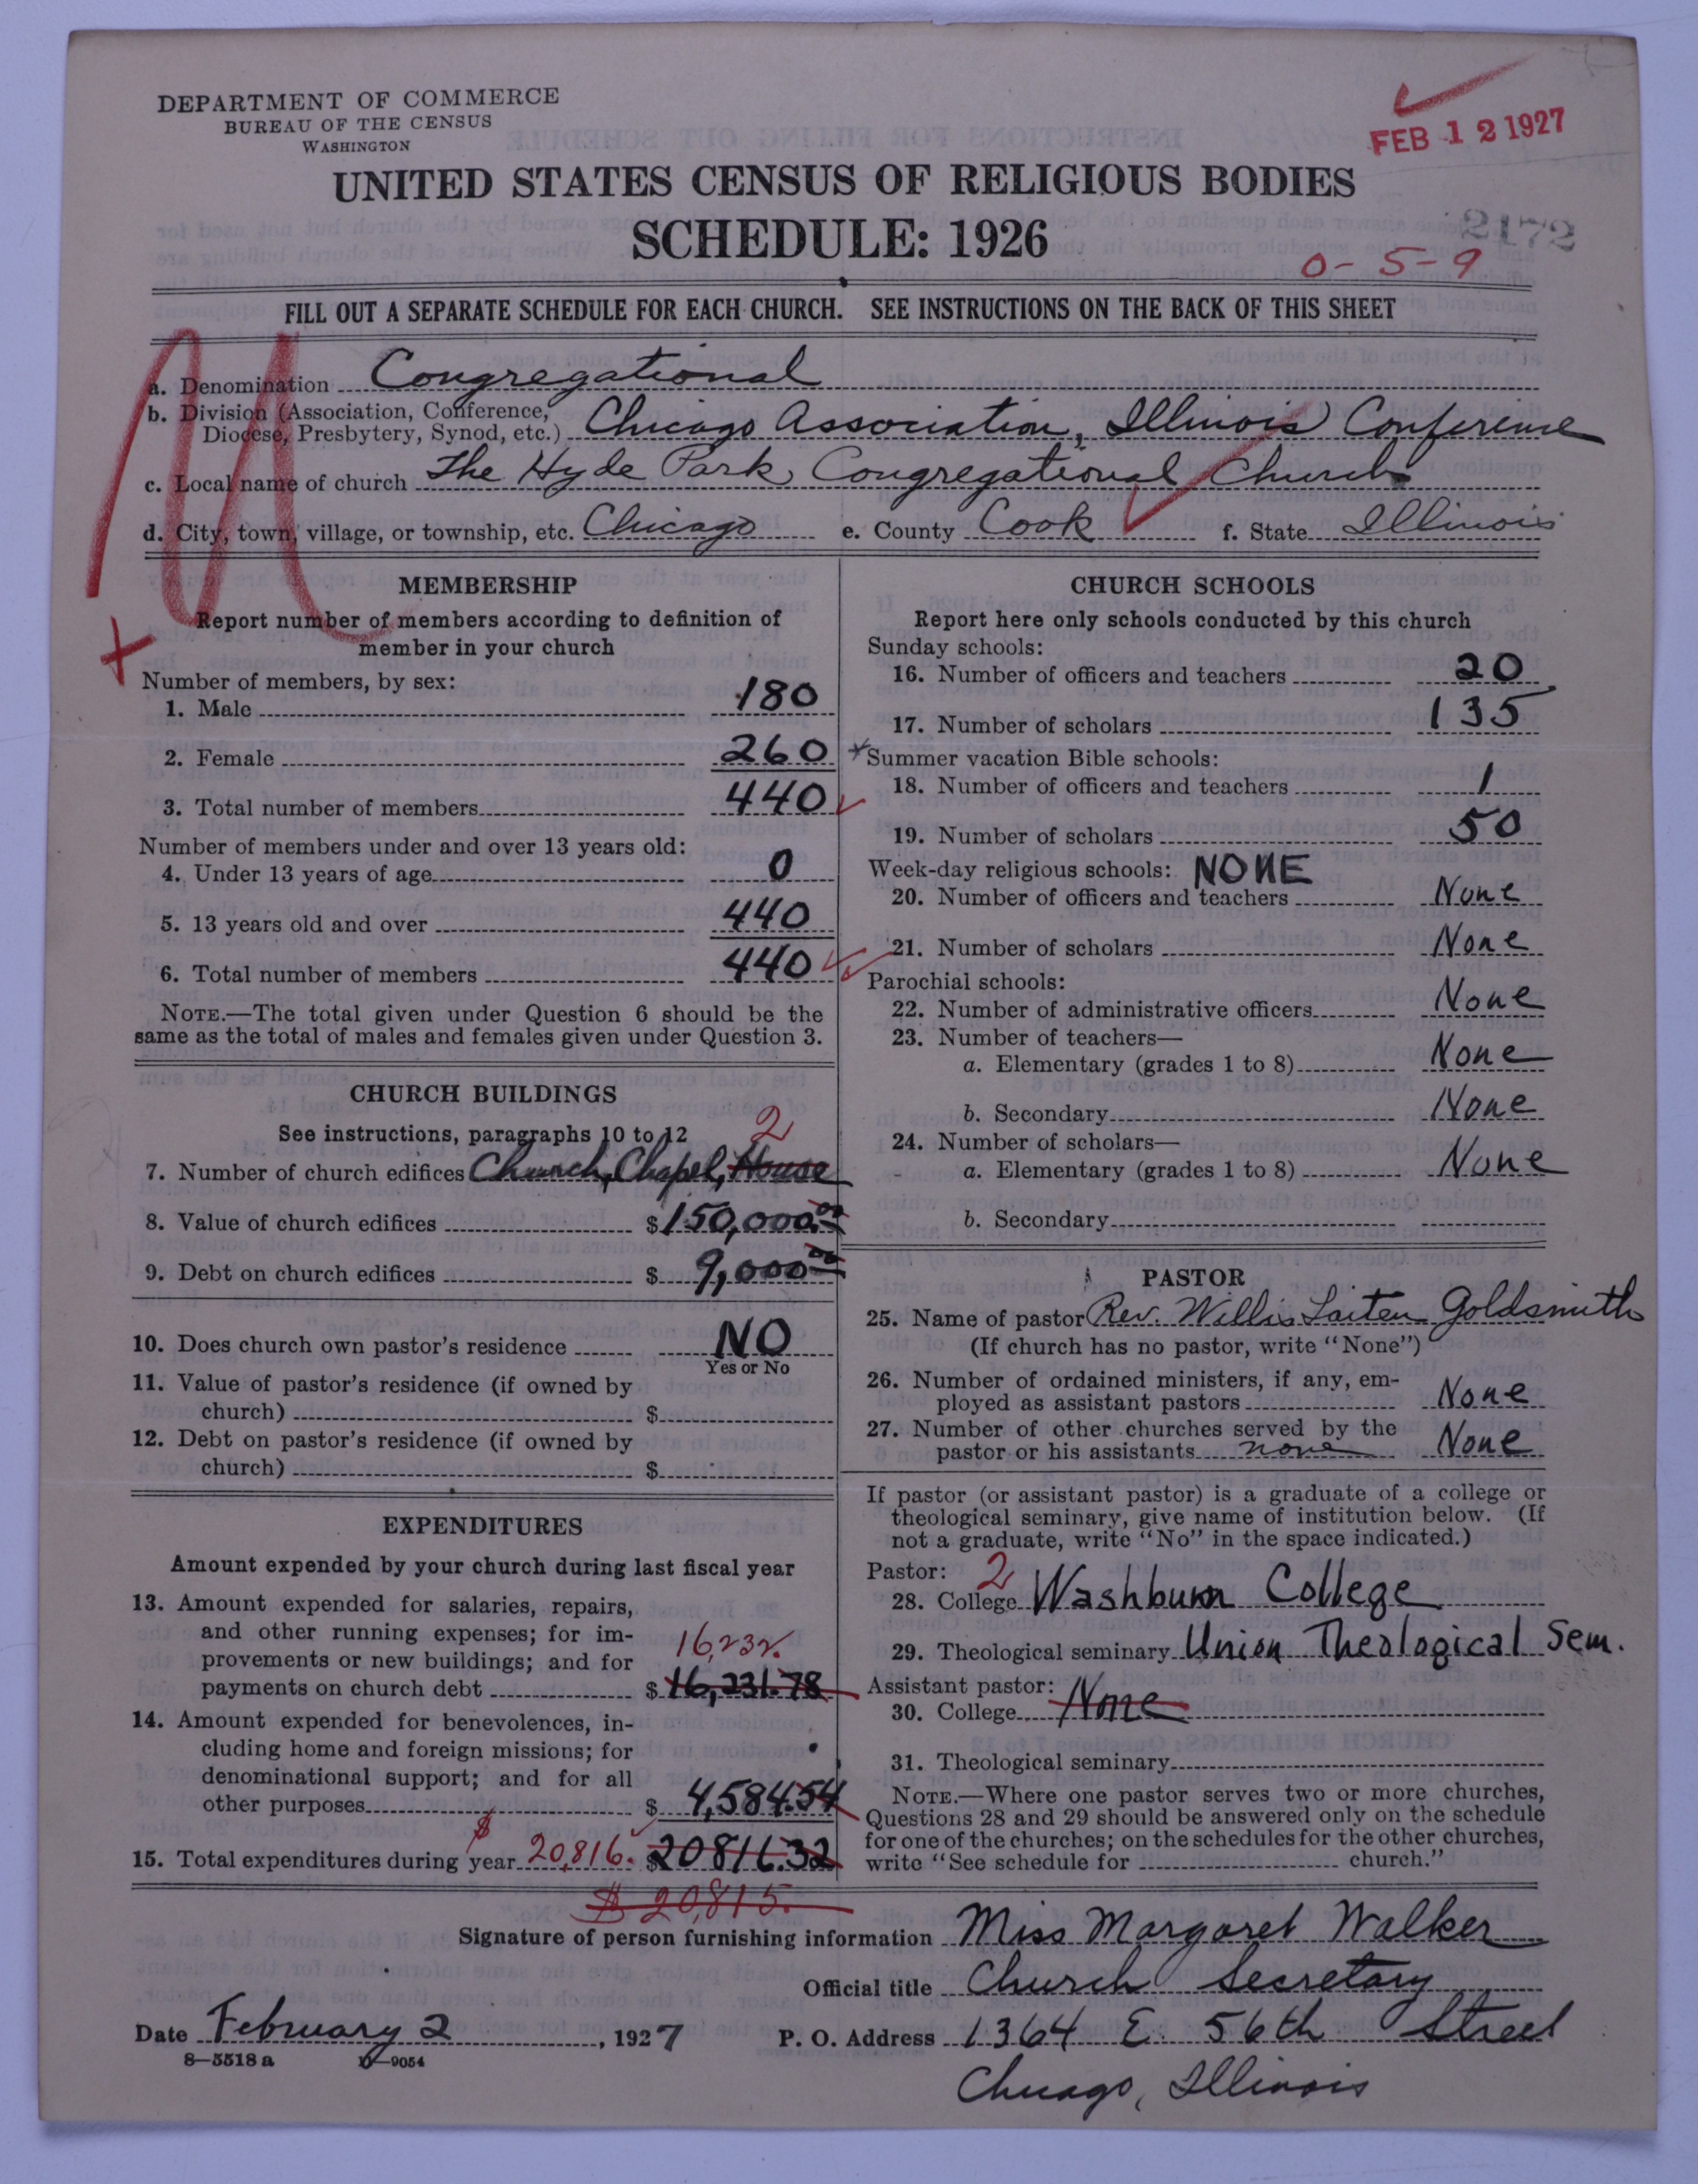 DEPARTMENT OF COMMERCE
BUREAU OF THE CENSUS
WASHINGTON
FEB 12 1927
UNITED STATES CENSUS OF RELIGIOUS BODIES
SCHEDULE: 1926
2172
0-5-9
FILL OUT A SEPARATE SCHEDULE FOR EACH CHURCH. SEE INSTRUCTIONS ON THE BACK OF THIS SHEET
a. Denomination Congregational
b. Division (Association, Conference, Diocese, Presbytery, Synod, etc.) Chicago Association, Illinois Conference
c. Local name of church The Hyde Park Congregational Church
d. City, town, village, or township, etc. Chicago e. County Cook f. State Illinois
MEMBERSHIP
Report number of members according to definition of
member in your church
Number of members, by sex:
1. Male 180
2. Female 260
3. Total number of members 440
Number of members under and over 13 years old:
4. Under 13 years of age 0
5. 13 years old and over 440
6. Total number of members 440
NOTE.—The total given under Question 6 should be the
same as the total of males and females given under Question 3.
CHURCH BUILDINGS
See instructions, paragraphs 10 to 12
2
7. Number of church edifices Church, Chapel, House
8. Value of church edifices $150,000.00
9. Debt on church edifices $ 9,000.00
10. Does church own pastor's residence NO
Yes or No
11. Value of pastor's residence (if owned by
church) $
12. Debt on pastor's residence (if owned by
church) $
EXPENDITURES
Amount expended by your church during last fiscal year
13. Amount expended for salaries, repairs,
and other running expenses; for im-
provements or new buildings; and for 16,232.
payments on church debt $16,231.78
14. Amount expended for benevolences, in-
cluding home and foreign missions; for
denominational support; and for all
other purposes $ 4,584.54
15. Total expenditures during year $ 20,816. $20816.32
$20,815.
CHURCH SCHOOLS
Report here only schools conducted by this church
Sunday schools:
16. Number of officers and teachers 20
17. Number of scholars 135
*Summer vacation Bible schools:
18. Number of officers and teachers 1
19. Number of scholars 50
Week-day religious schools: NONE
20. Number of officers and teachers None
21. Number of scholars None
Parochial schools:
22. Number of administrative officers None
23. Number of teachers—
a. Elementary (grades 1 to 8) None
b. Secondary None
24. Number of scholars—
a. Elementary (grades 1 to 8) None
b. Secondary
PASTOR
25. Name of pastor Rev. Willis Goldsmith
(If church has no pastor, write "None")
26. Number of ordained ministers, if any, em-
ployed as assistant pastors None
27. Number of other churches served by the
pastor or his assistants none None
If pastor (or assistant pastor) is a graduate of a college or
theological seminary, give name of institution below. (If
not a graduate, write "No" in the space indicated.)
Pastor: 2
28. College Washburn College
29. Theological seminary Union Theological Sem.
Assistant pastor:
30. College None
31. Theological seminary
NOTE.—Where one pastor serves two or more churches,
Questions 28 and 29 should be answered only on the schedule
for one of the churches; on the schedules for the other churches,
write "See schedule for church."
Signature of person furnishing information Miss Margaret Walker
Official title Church Secretary
Date February 2, 1927 P. O. Address 1364 E. 56th Street
8—5518 a 9054
Chicago, Illinois